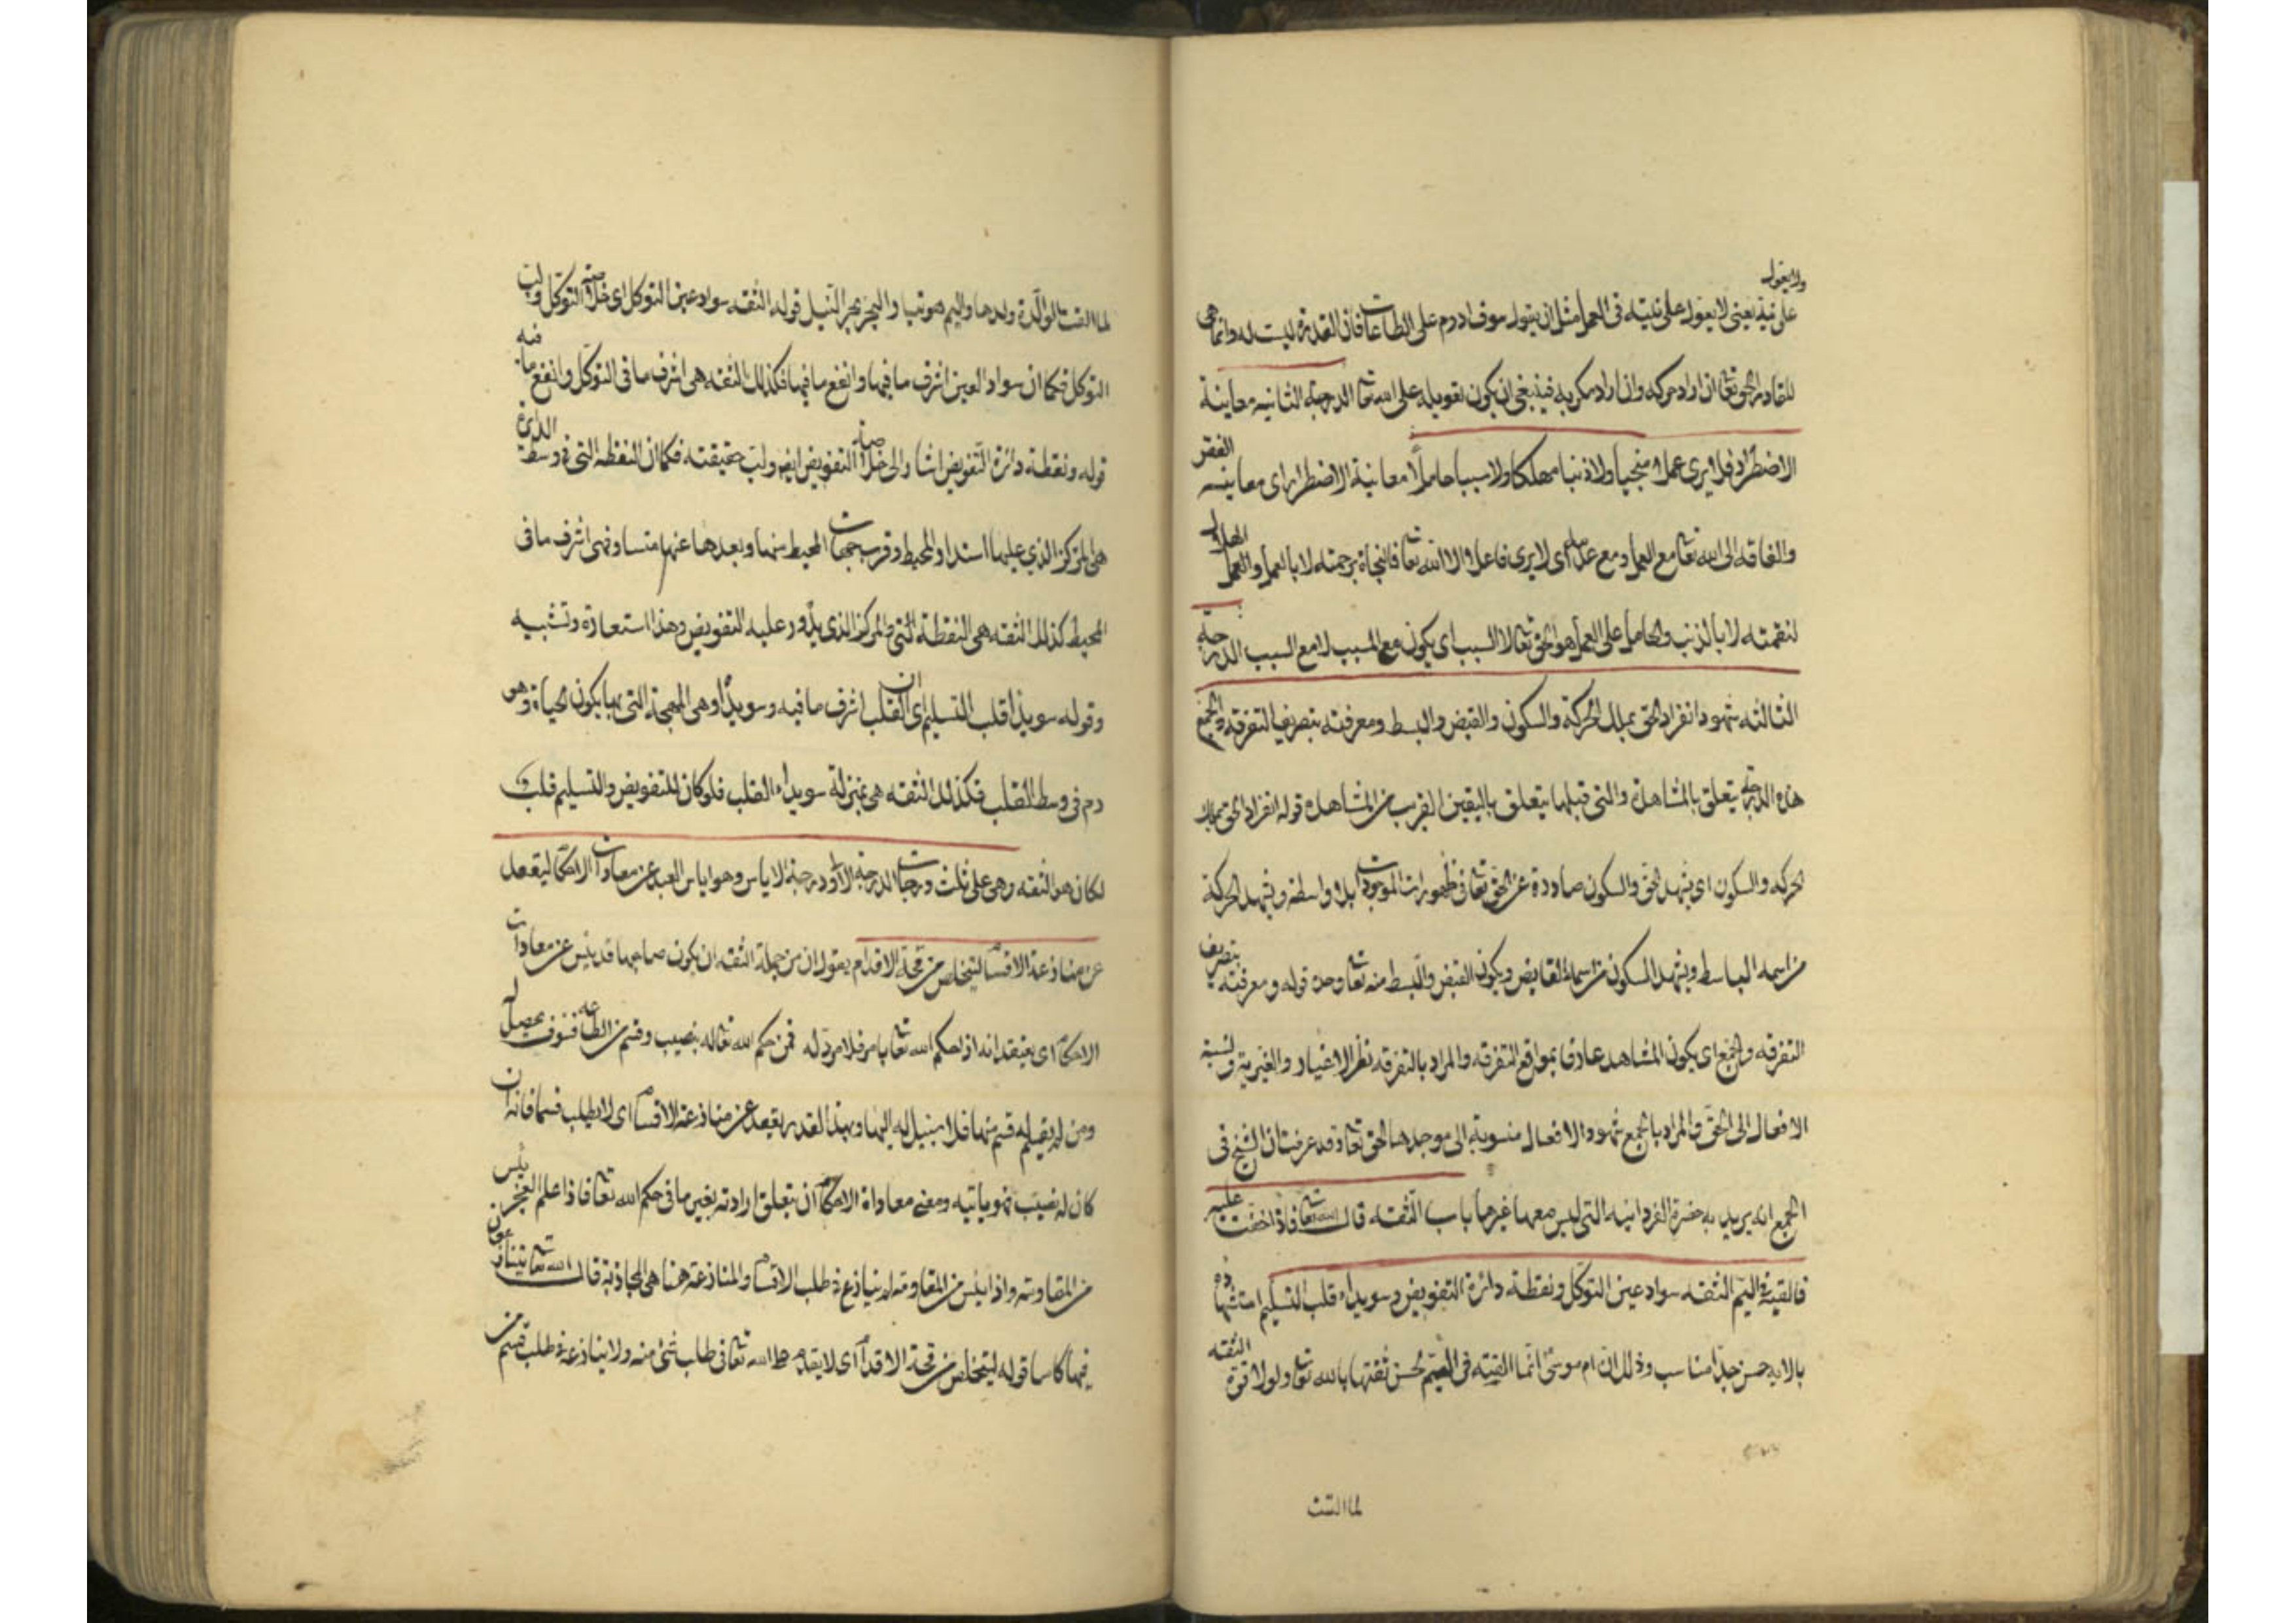 ولا يعول
على نية يعنى لا يعول على نيته فى العمل مثل ان يقول سوف ادوم على الطاعات فان القدرة ليست له وانما هى
للقادر الحق تعا ان اراد حركه وان اراد سكن به فينبغى ان يكون تعويله على الله تعا الدرجة الثانيه معاينة
الاضطرار فلا يرى عملا منجيا ولا ذنبا مهلكا ولا سببا حاملا معاينة الاضطرار اى معاينه الفقر
والفاقه الى الله تعا مع العمل ومع عدمه اى لا يرى فاعلا الا الله تعا فالنجاة برحمته لا بالعمل والهلاك
لنقمته لا بالذنب والحامل على العمل هو الحق تعا لا السبب اى يكون مع المسبب لا مع السبب الدرجة
الثالثه شهود انفراد الحق بملك الحركة والسكون والقبض والبسط ومعرفته بتصريف التفرقه والجمع
هذه الدرجة يتعلق بالمشاهدة والتى قبلها يتعلق باليقين القريب من المشاهده قوله انفراد الحق بملك
الحركه والسكون اى يشهد الحق والسكون صادرة عن الحق تعا فى ظهورات الموجودات بلا واسطة ويشهد الحركة
من اسمه الباسط ويشهد السكون من اسمه القابض ويكون القبض والبسط منه تعا وحده قوله ومعرفته بتصريف
التفرقه والجمع اى يكون المشاهد عارفا بمواقع التفرقه والمراد بالتفرقه نظر الاغيار والغيرية ونسبة
الافعال الى الحق والمراد بالجمع شهود الافعال منسوبة الى موجدها الحق تعا وقد عرفت ان الشيخ فى
الجمع انه يريد به حضرة الفردانيه التى ليس معها غيرها باب الثقه قال الله تعا فاذا خفت عليه
فالقيه فى اليم الثقه سواد عين التوكل ونقطة دائرة التفويض وسويداء قلب التسليم استشهاده
بالايه حسن جدا مناسب وذلك ان ام موسى انما القيته فى اليم لحسن ثقتها بالله تعا ولولا قوة الثقه
لما القت
لما القت الوالدة ولدها واليم هو تيا والبحر بحر النيل قوله الثقه سواد عين التوكل اى خلاصة التوكل ولب
التوكل فكما ان سواد العين اشرف ما فيها وانفع ما فيها فكذلك الثقه هى اشرف ما فى التوكل وانفع ما فيه
قوله ونقطة دائرة التفويض اشار الى خلاصة التفويض ايضا ولب حقيقته فكما ان النقطه التى فى وسط الدائرة
هى المركز الذي عليها استدار المحيط وقرب جهات المحيط منها وبعدها عنها متساو فهى اشرف ما فى
المحيط كذلك الثقه هى النقطة التى فى المركز الذى يدور عليه التفويض وهذا استعارة وتشبيه
وقوله سويداء قلب التسليم اى ان القلب اشرف ما فيه وسويداؤه هى المهجة التى بها يكون الحياة وهو
دم فى وسط القلب فكذلك الثقه هى بمنزلة سويداء القلب فلو كان للتفويض والتسليم قلب
لكان هو الثقه وهى على ثلث درجات الدرجة الاولى درجة الاياس وهو اياس العبد عن معاداة الاحكام ليقعد
عن منازعة الاقسام ليتخلص من قحة الاقدام يقول ان من جملة الثقه ان يكون صاحبها قد يئس عن معادات
الاحكام اى يعتقد انه اذا حكم الله تعا بامر فلا مرد له فمن حكم الله تعا له بنصيب وقسم من الطاعه فسوف يحصل له
ومن لم يقسم له قسم منها فلا سبيل له اليها وبهذا القدر يقعد عن منازعة الاقسام اى لا يطلب قسما فانه ان
كان له نصيب فهو ياتيه ومعنى معاداة الاحكام ان يتعلق ارادته بغير ما فى حكم الله تعا فاذا علم العجز يئس
من المقاومة واذا يئس من المقاومة لم ينازع فى طلب الاقسام والمنازعة هنا هى المجاذبة قال الله تعا يتنازعون
فيها كاسا قوله ليتخلص من قحة الاقدام اى لا يقدم على الله تعا فى طلب شئ منه ولا ينازعه فى طلب قسم من